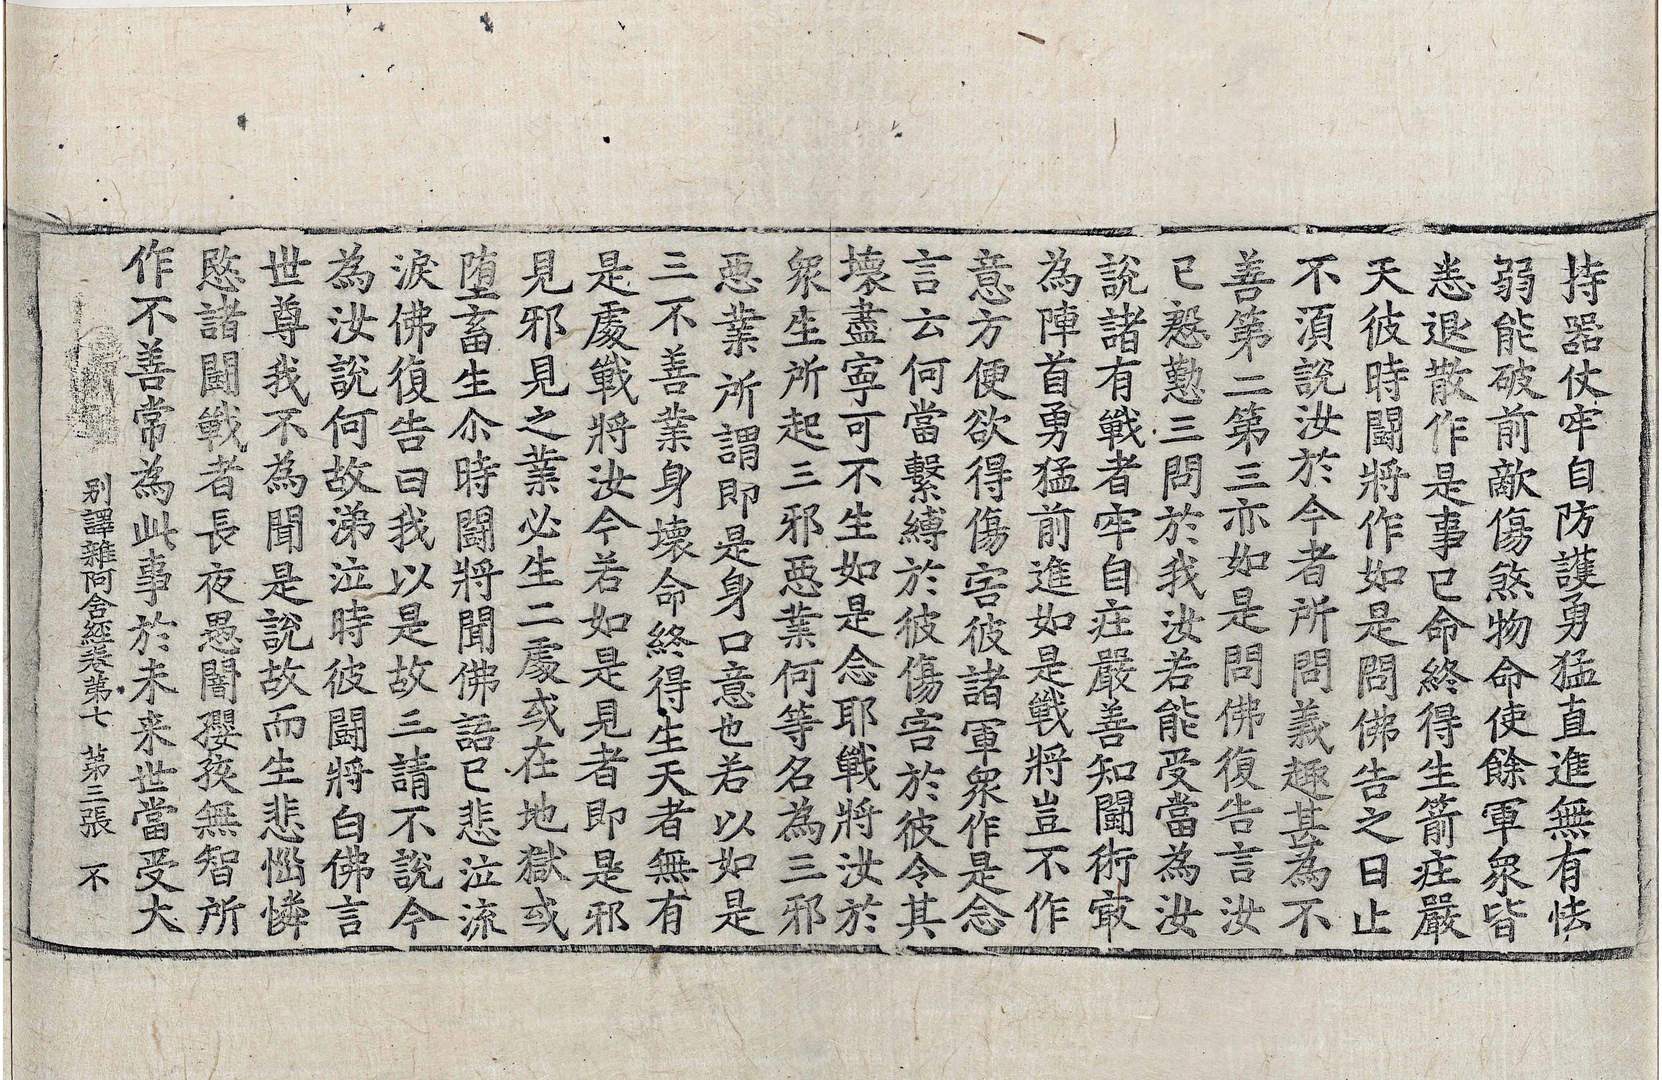 持器仗牢自防護勇猛直進無有怯
弱能破前敵傷煞物命使餘軍衆皆
悉退散作是事已命終得生箭庄嚴
天彼時鬪將作如是問佛告之曰止
不湏說汝於今者所問義趣甚為不
善第二第三亦如是問佛復告言汝
已慇懃三問於我汝若能受當為汝
說諸有戰者牢自庄嚴善知鬪術㝡
為陣首勇猛前進如是戰將豈不作
意方便欲得傷害彼諸軍衆作是念
言云何當繫縛於彼傷害於彼令其
壞盡寧可不生如是念耶戰將汝於
衆生所起三邪惡業何等名為三邪
惡業所謂即是身口意也若以如是
三不善業身壞命終得生天者無有
是處戰將汝今若如是見者即是邪
見邪見之業必生二處或在地獄或
墮畜生尒時鬪將聞佛語已悲泣流
淚佛復告曰我以是故三請不說今
為汝說何故涕泣時彼鬪將白佛言
世尊我不為聞是說故而生悲惱憐
愍諸鬪戰者長夜愚闇孾孩無智所
作不善常為此事於未来世當受大
別譯雜阿含經卷第七 第三張 不